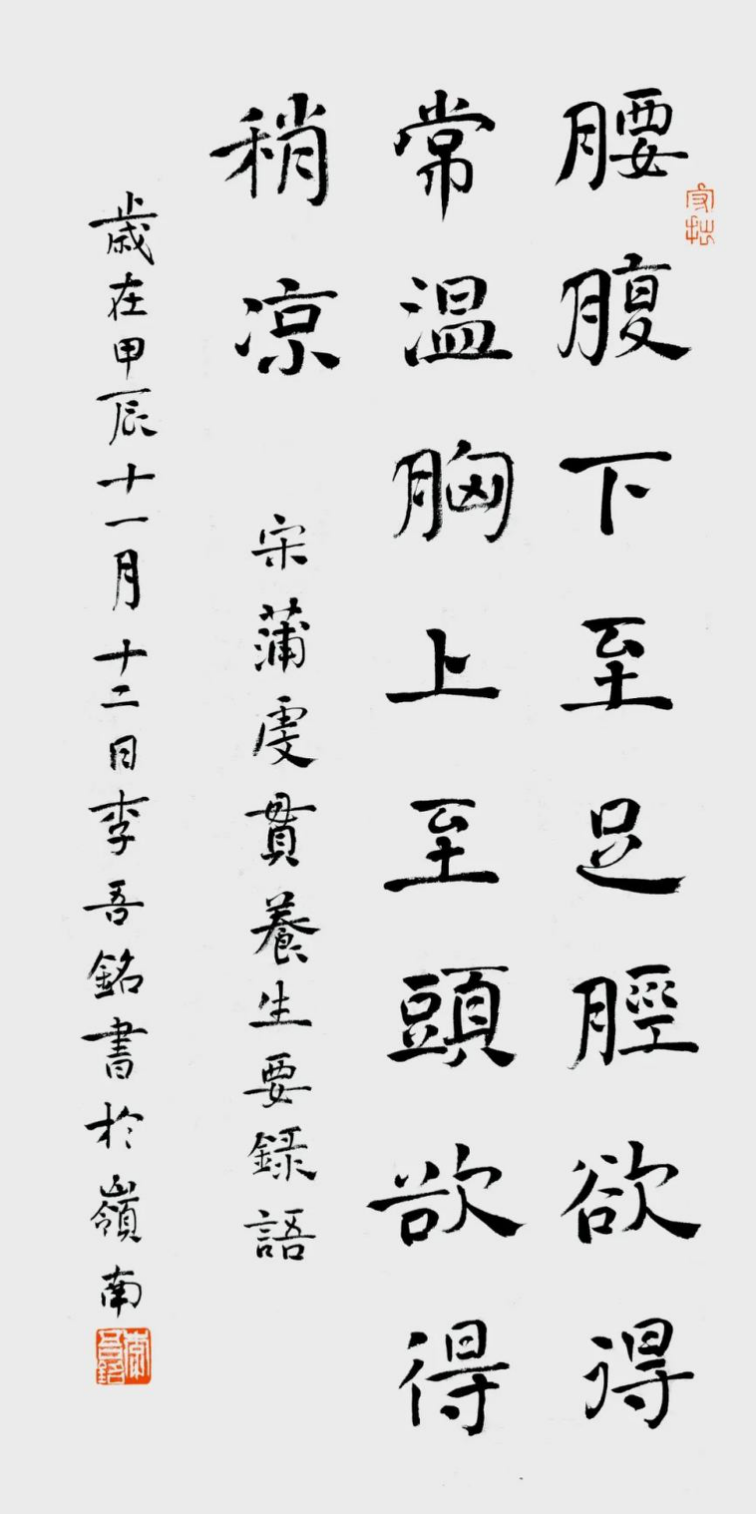 腰腹下至足脛欲得
常温胸上至頭欲得
稍凉
宋蒲虔貫養生要録語
歳在甲辰十一月十二日李吾銘書於嶺南
守拙
李吾銘